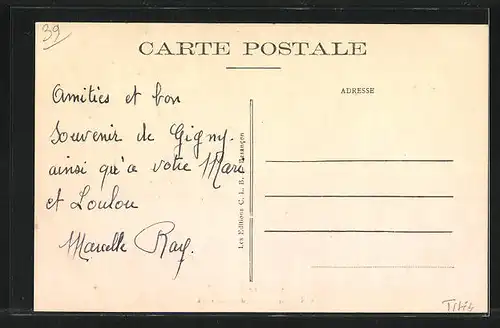 39
CARTE POSTALE
Amitiés et bon
Souvenir de Gigny.
ainsi qu'a votre Mari
et Loulou
Marcelle Ray.
ADRESSE
Les Editions C. L. B. Besançon